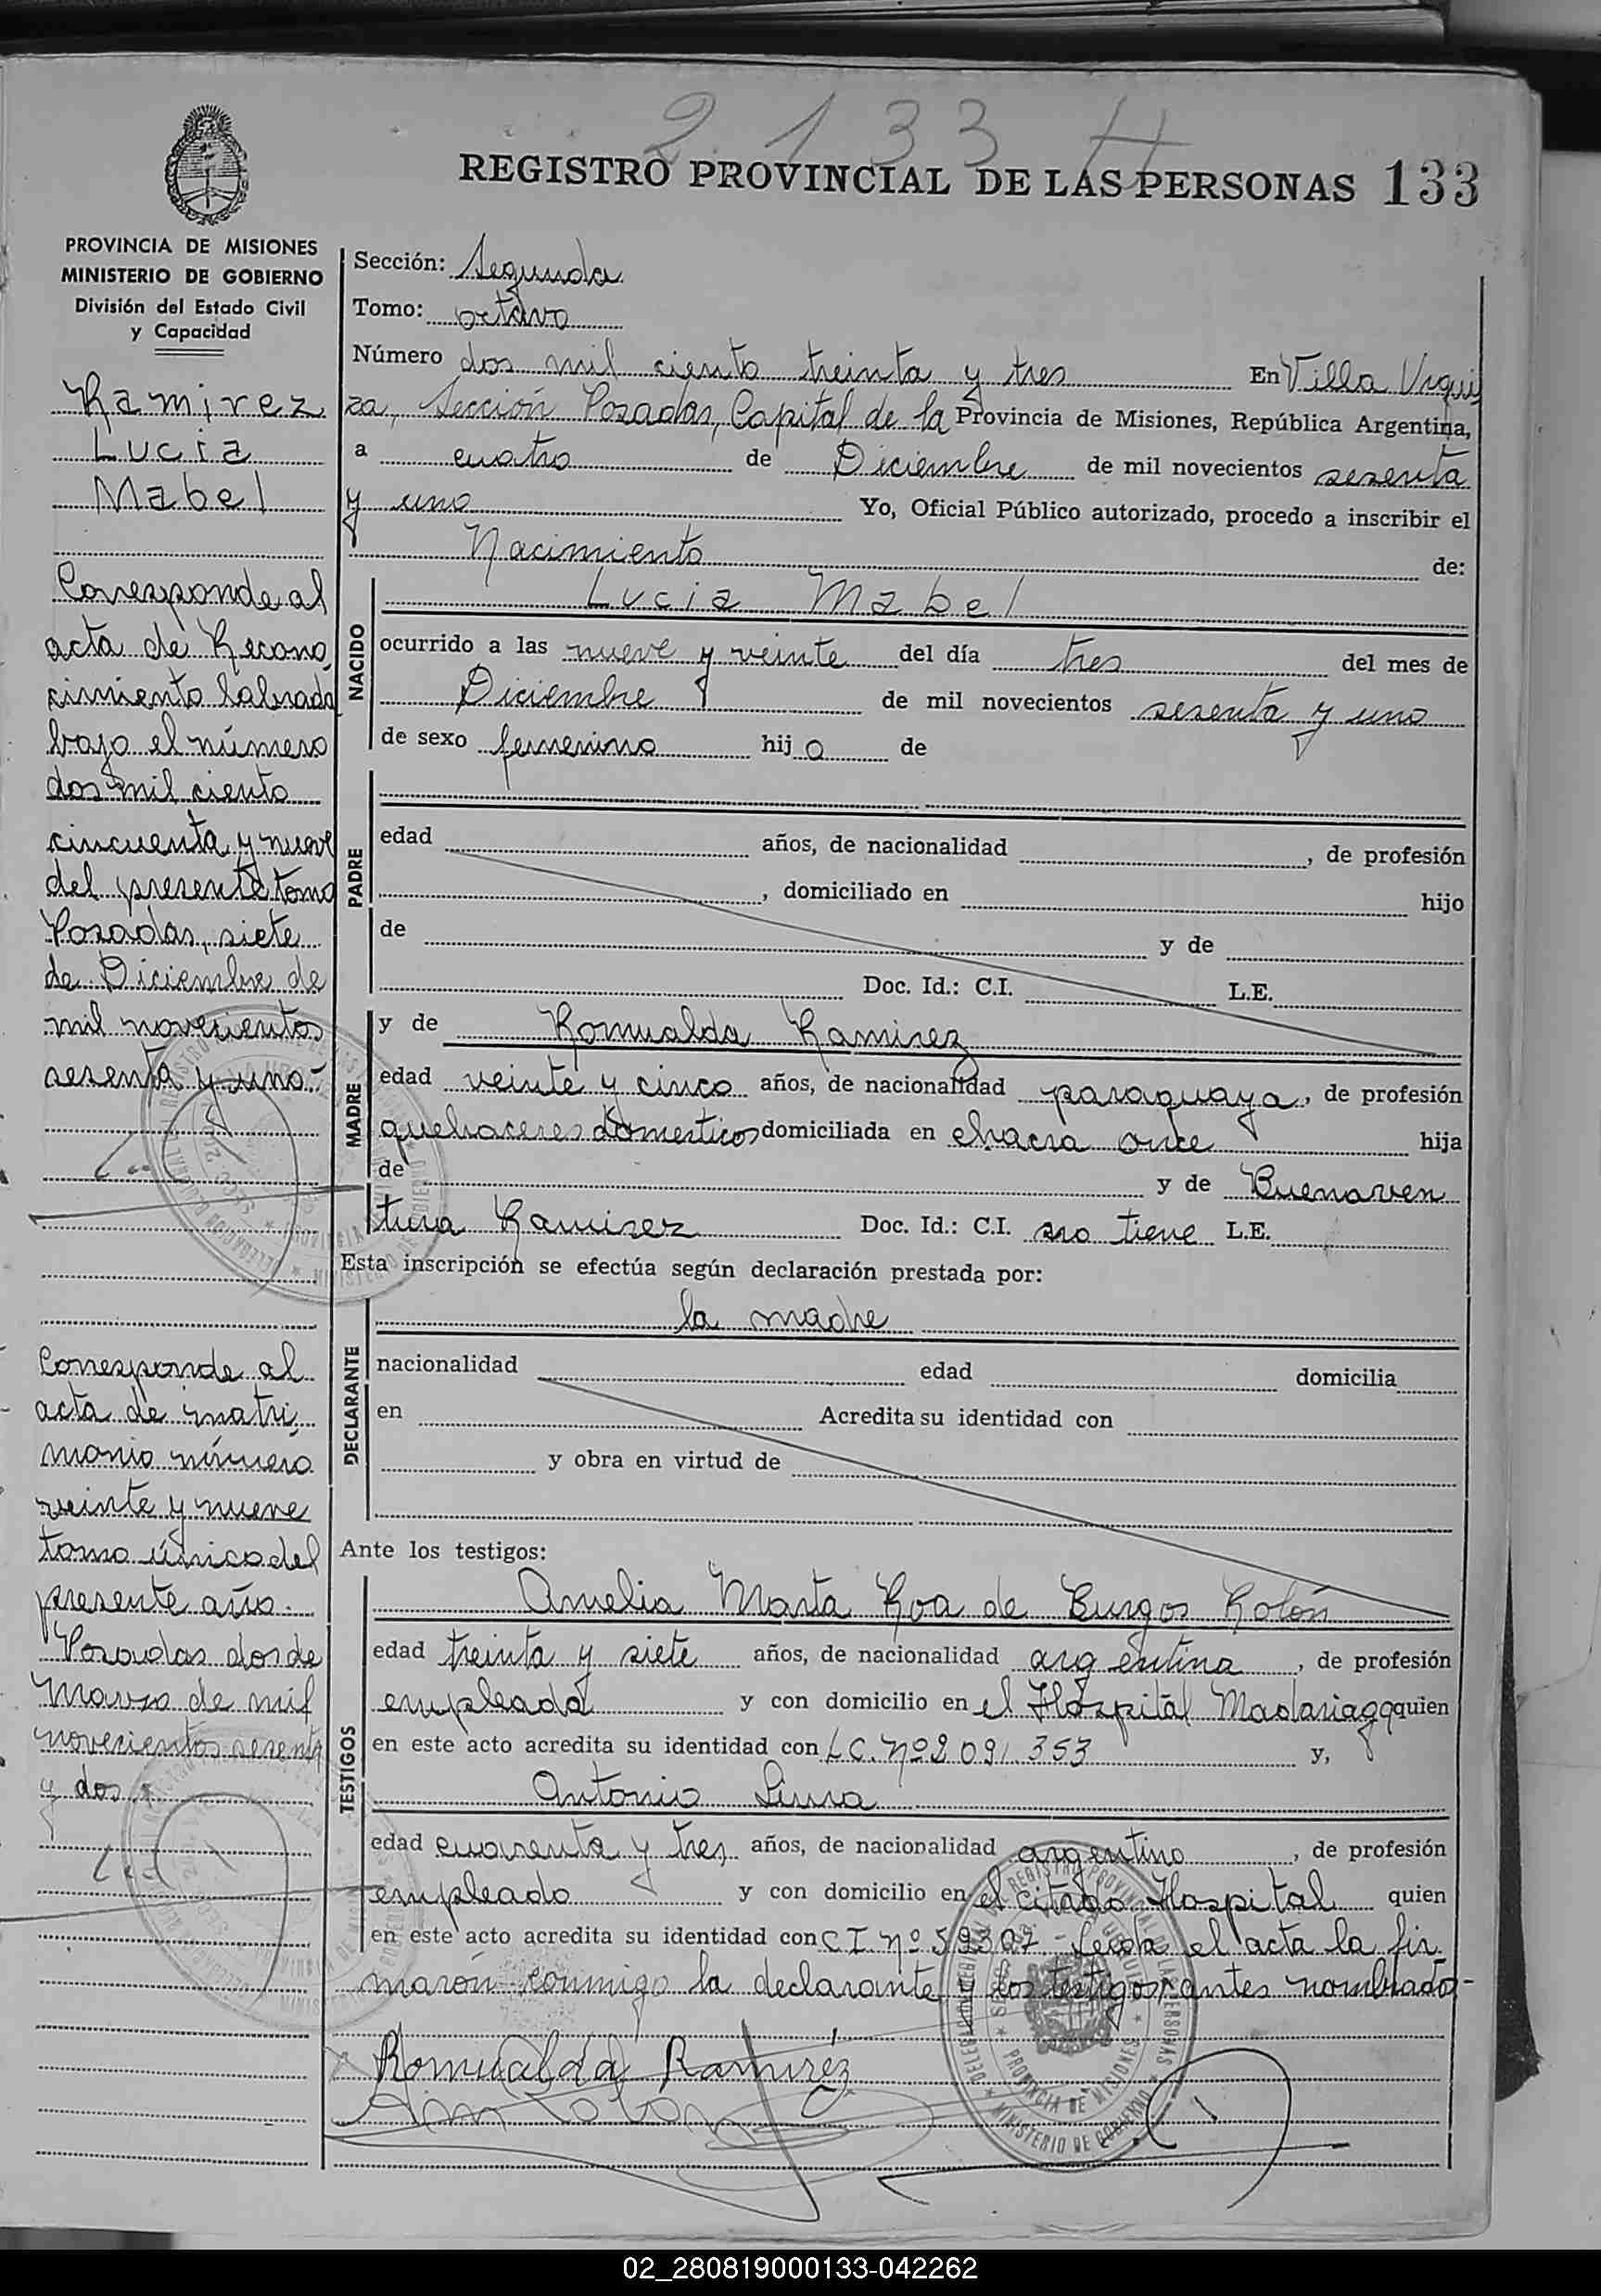 2133
REGISTRO PROVINCIAL DE LAS PERSONAS 133
PROVINCIA DE MISIONES
MINISTERIO DE GOBIERNO
División del Estado Civil
y Capacidad
Ramirez
Lucia
Mabel
Corresponde al
acta de Recono
cimiento labrada
bajo el número
dos mil ciento
cincuenta y nueve
del presente tomo
Posadas, siete
de Diciembre de
mil novecientos
sesenta y uno
Corresponde al
acta de matri
monio número
veinte y nueve
tomo único del
presente año.
Posadas dos de
Marzo de mil
novecientos sesenta
y dos
Sección: Segunda
Tomo: octavo
Número dos mil ciento treinta y tres En Villa Urqui
za, Sección Posadas, Capital de la Provincia de Misiones, República Argentina,
a cuatro de Diciembre de mil novecientos sesenta
y uno Yo, Oficial Público autorizado, procedo a inscribir el
Nacimiento de:
NACIDO
Lucia Mabel
ocurrido a las nueve y veinte del día tres del mes de
Diciembre de mil novecientos sesenta y uno
de sexo femenino hij a de
PADRE
edad años, de nacionalidad , de profesión
, domiciliado en hijo
de y de
Doc. Id.: C.I. L.E.
MADRE
y de Romualda Ramirez
edad veinte y cinco años, de nacionalidad paraguaya, de profesión
quehaceres domesticos domiciliada en chacra once hija
de y de Buenaven
tura Ramirez Doc. Id.: C.I. no tiene L.E.
Esta inscripción se efectúa según declaración prestada por:
DECLARANTE
la madre
nacionalidad edad domicilia
en Acredita su identidad con
y obra en virtud de
Ante los testigos:
TESTIGOS
Amelia Marta Roa de Burgos Rolón
edad treinta y siete años, de nacionalidad argentina, de profesión
empleada y con domicilio en el Hospital Madariaga quien
en este acto acredita su identidad con L.C. nº 2.091.353 y,
Antonio
edad cuarenta y tres años, de nacionalidad argentino, de profesión
empleado y con domicilio en el citado Hospital quien
en este acto acredita su identidad con C I nº 59307 - Leida el acta la fir
maron conmigo la declarante y los testigos antes nombrados-
Romualda Ramiréz
02_280819000133-042262